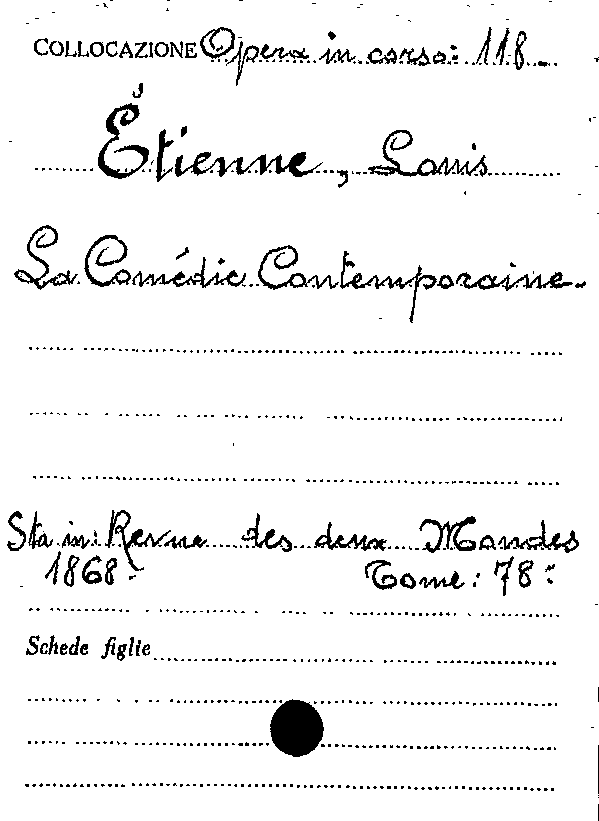 COLLOCAZIONE Opera in corso: 118.
Étienne, Louis
La Comédie Contemporaine.
Sta in: Revue des deux Mondes
1868. Tome: 78:
Schede figlie